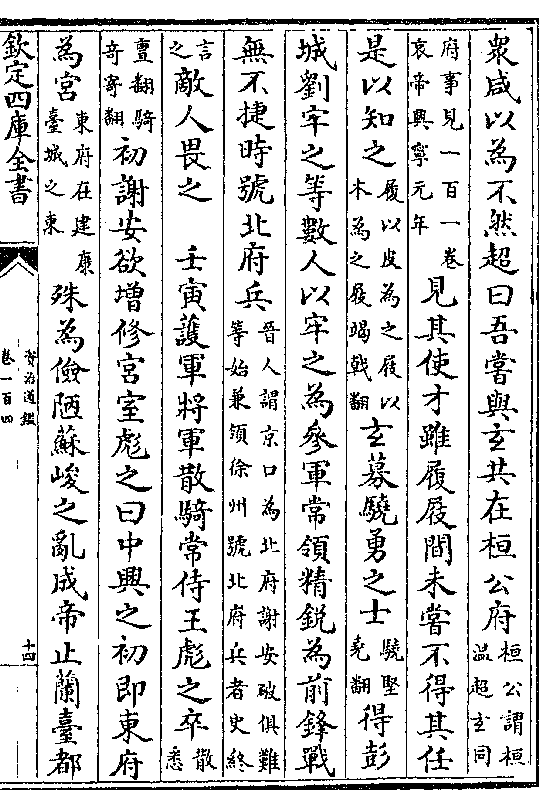 衆咸以為不然超曰吾嘗與玄共在桓公府桓公謂桓温超玄同
府事見一百一卷哀帝興寧元年見其使才雖履屐間未嘗不得其任
是以知之履以皮為之屐以木為之屐竭戟翻玄募驍勇之士驍堅堯翻得彭
城劉牢之等數人以牢之為參軍常領精鋭為前鋒戰
無不捷時號北府兵晉人謂京口為北府謝安破俱難等始兼領徐州號北府兵者史終
言之敵人畏之　壬寅護軍將軍散騎常侍王彪之卒散悉
亶翻騎奇寄翻初謝安欲增修宮室彪之曰中興之初即東府
為宮東府在建康臺城之東殊為儉陋蘇峻之亂成帝止蘭臺都
欽定四庫全書
資治通鑑
卷一百四
十四